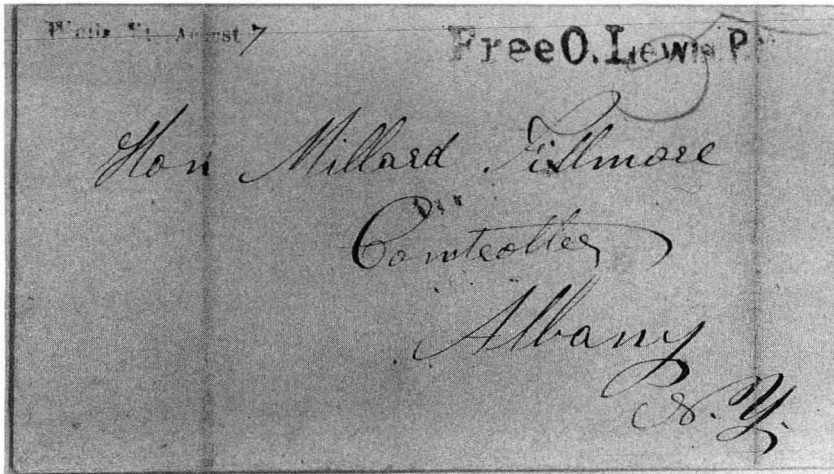 Wells Vt. August 7
Free O. Lewis P.
Hon Millard Fillmore
Comtroller
Albany
N. Y.